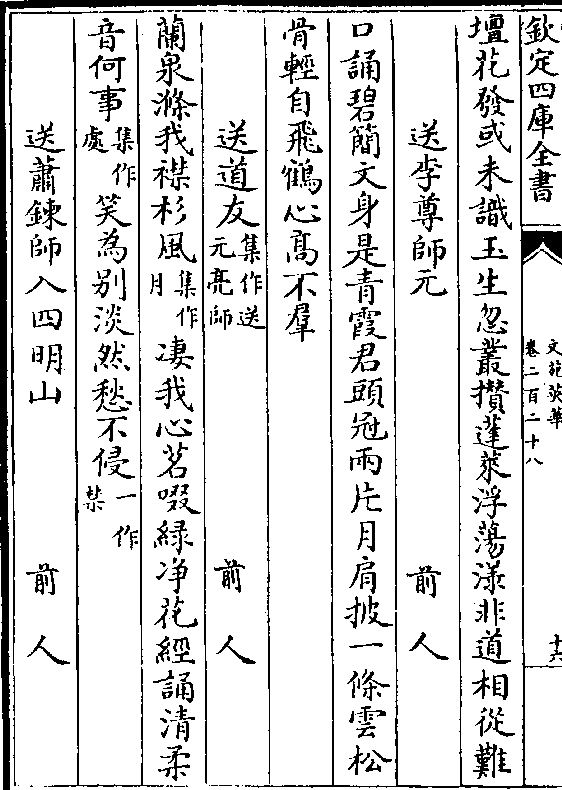 欽定四庫全書
文苑英華
卷二百二十八
十六
壇花發或未識玉生忽叢攢蓬萊浮蕩漾非道相從難
送李尊師元 前人
口誦碧簡文身是青霞君頭冠兩片月肩披一條雲松
骨輕自飛鶴心高不羣
送道友集作送元亮師 前人
蘭泉滌我襟杉風集作月凄我心茗啜綠净花經誦清柔
音何事集作處笑為別淡然愁不侵一作禁
送蕭鍊師入四明山 前人